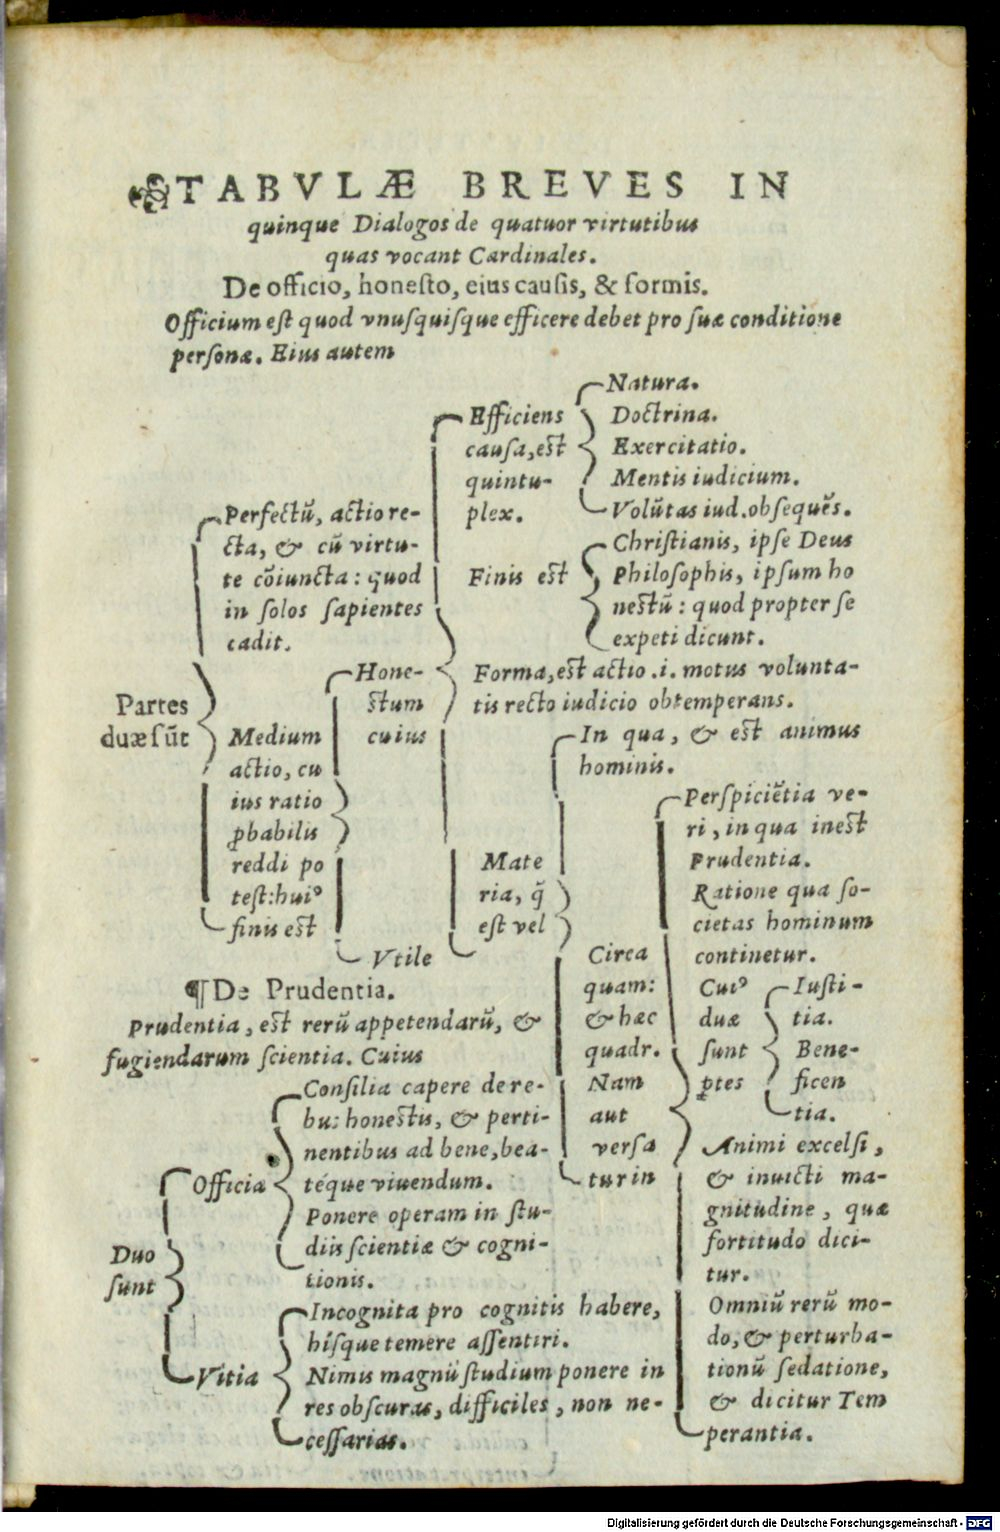 TABVLÆ BREVES IN
quinque Dialogos de quatuor virtutibus
quas vocant Cardinales.
De officio, honesto, eius causis, & formis.
Officium est quod vnusquisque efficere debet pro suæ conditione
personæ. Eius autem
Partes
duæ sũt
Perfectũ, actio re-
cta, & cũ virtu-
te cõiuncta: quod
in solos sapientes
cadit.
Medium
actio, cu
ius ratio
ꝓbabilis
reddi po
test: huiꝰ
finis est
Hone-
stum
cuius
Efficiens
causa, est
quintu-
plex.
Natura.
Doctrina.
Exercitatio.
Mentis iudicium.
Volũtas iud. obsequẽs.
Finis est
Christianis, ipse Deus
Philosophis, ipsum ho
nestũ: quod propter se
expeti dicunt.
Forma, est actio .i. motus volunta-
tis recto iudicio obtemperans.
Mate
ria, q̃
est vel
In qua, & est animus
hominis.
Circa
quam:
& hæc
quadr.
Nam
aut
versa
tur in
Perspiciẽtia ve-
ri, in qua inest
Prudentia.
Ratione qua so-
cietas hominum
continetur.
Cuiꝰ
duæ
sunt
ꝑtes
Iusti-
tia.
Bene-
ficen
tia.
Animi excelsi,
& inuicti ma-
gnitudine, quæ
fortitudo dici-
tur.
Omniũ rerũ mo-
do, & perturba-
tionũ sedatione,
& dicitur Tem
perantia.
Vtile
¶ De Prudentia.
Prudentia, est rerũ appetendarũ, &
fugiendarum scientia. Cuius
Duo
sunt
Officia
Consilia capere de re-
bus honestis, & perti-
nentibus ad bene, bea-
téque viuendum.
Ponere operam in stu-
diis scientiæ & cogni-
tionis.
Vitia
Incognita pro cognitis habere,
hísque temere assentiri.
Nimis magnũ studium ponere in
res obscuras, difficiles, non ne-
cessarias.
Digitalisierung gefördert durch die Deutsche Forschungsgemeinschaft - DFG